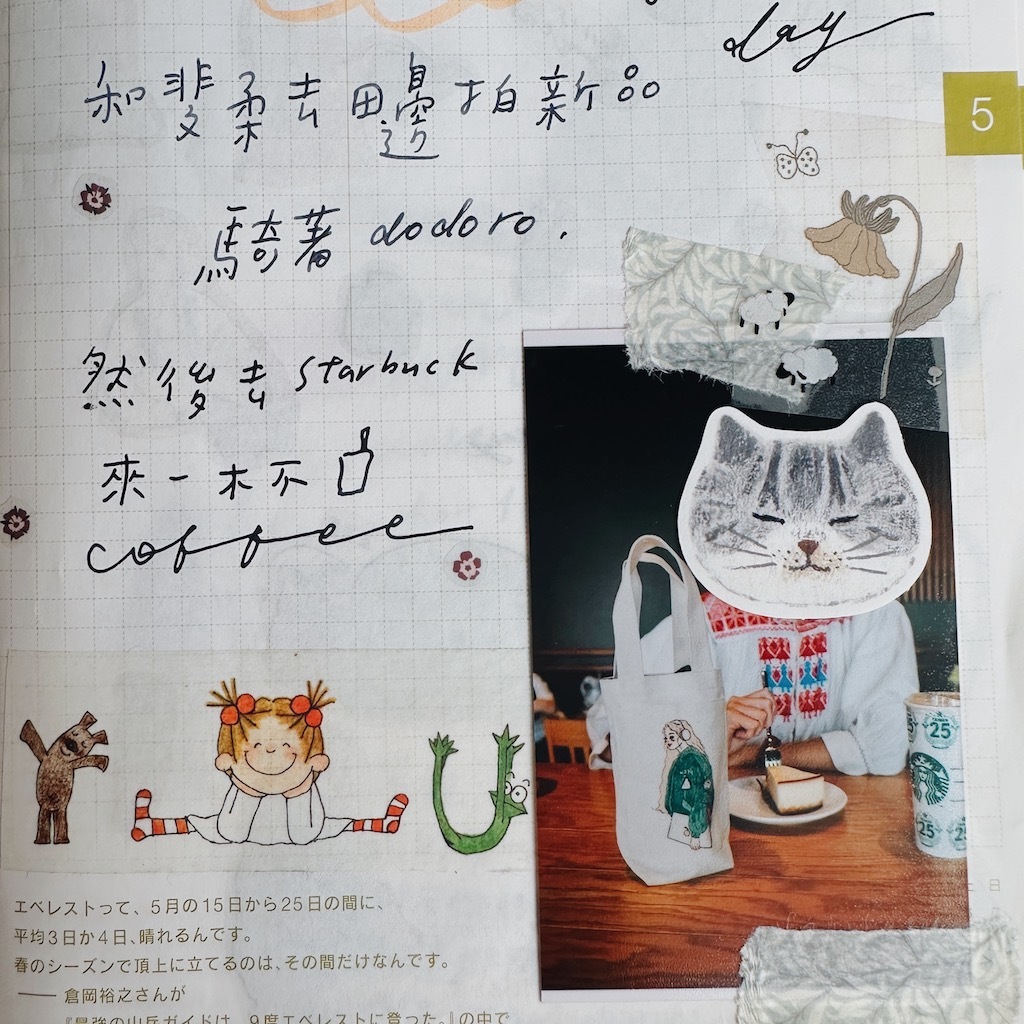 day
5
和斐柔去田邊拍新品
騎著 dodoro .
然後去 starbuck
來一杯
coffee
TAIWAN
25
25
日
エベレストって、5月の15日から25日の間に、
平均3日か4日、晴れるんです。
春のシーズンで頂上に立てるのは、その間だけなんです。
── 倉岡裕之さんが
『最強の山岳ガイドは、9度エベレストに登った。』の中で